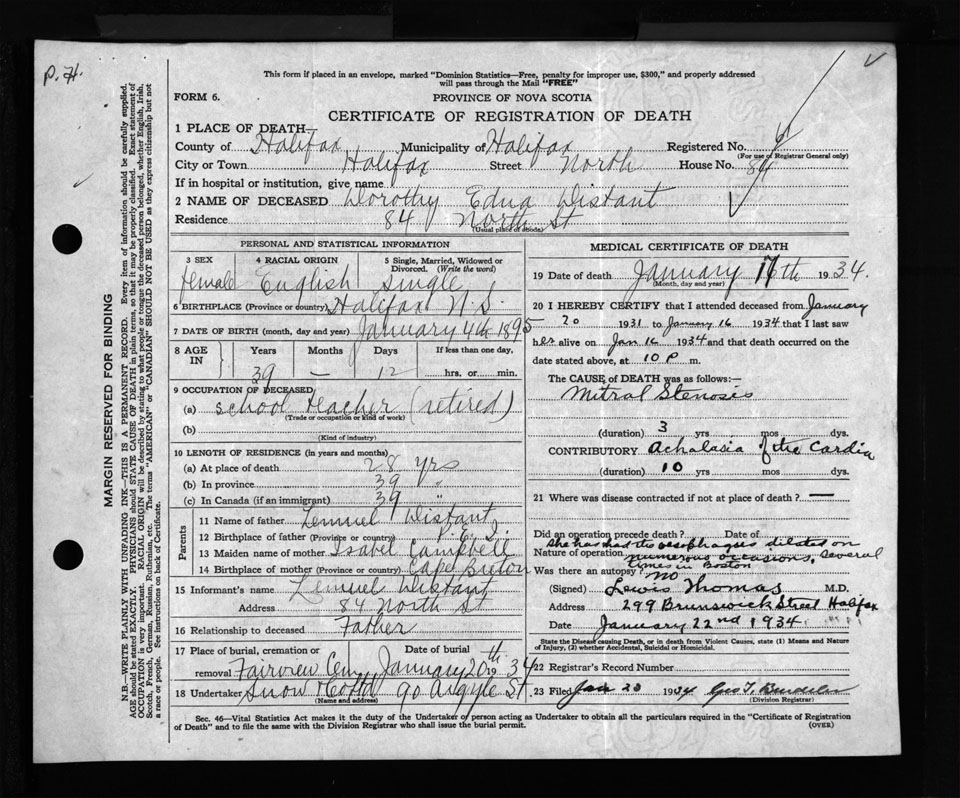 P.H.
This form if placed in an envelope, marked "Dominion Statistics—Free, penalty for improper use, $300," and properly addressed
will pass through the Mail "FREE"
FORM 6.
PROVINCE OF NOVA SCOTIA
CERTIFICATE OF REGISTRATION OF DEATH
1 PLACE OF DEATH—
County of Halifax Municipality of Halifax Registered No.
(For use of Registrar General only)
City or Town Halifax Street North House No. 84
If in hospital or institution, give name
2 NAME OF DECEASED Dorothy Edna Distant
Residence 84 North St
(Usual place of abode)
PERSONAL AND STATISTICAL INFORMATION
3 SEX 4 RACIAL ORIGIN 5 Single, Married, Widowed or
Divorced. (Write the word)
Female English Single
6 BIRTHPLACE (Province or country) Halifax N.S.
7 DATE OF BIRTH (month, day and year) January 4th 1895
8 AGE IN Years Months Days If less than one day,
39 — 12 hrs. or min.
9 OCCUPATION OF DECEASED
(a) school teacher (retired)
(Trade or occupation or kind of work)
(b)
(Kind of industry)
10 LENGTH OF RESIDENCE (in years and months)
(a) At place of death 28 yrs
(b) In province 39 "
(c) In Canada (if an immigrant) 39 "
Parents
11 Name of father Lemuel Distant
12 Birthplace of father (Province or country) P.E.I.
13 Maiden name of mother Isabel Campbell
14 Birthplace of mother (Province or country) Cape Breton
15 Informant's name Lemuel Distant
Address 84 North St
16 Relationship to deceased Father
17 Place of burial, cremation or Date of burial
removal Fairview Cem January 20th 1934
18 Undertaker Snow 90 Argyle St.
(Name and address)
MEDICAL CERTIFICATE OF DEATH
19 Date of death January 16th 1934.
(Month, day and year)
20 I HEREBY CERTIFY that I attended deceased from January
20 1931 to January 16 1934 that I last saw
her alive on Jan 16 1934 and that death occurred on the
date stated above, at 10 P m.
The CAUSE of DEATH was as follows:—
Mitral Stenosis
(duration) 3 yrs mos dys.
CONTRIBUTORY Achalasia of the Cardia
(duration) 10 yrs mos dys.
21 Where was disease contracted if not at place of death? —
Did an operation precede death? Date of
She has had the oesophagus dilated on
Nature of operation numerous occasions, several
times in Boston
Was there an autopsy? no
(Signed) Lewis Thomas M.D.
Address 299 Brunswick Street Halifax
Date January 22nd 1934.
State the Disease causing Death, or in death from Violent Causes, state (1) Means and Nature
of Injury, (2) whether Accidental, Suicidal or Homicidal.
22 Registrar's Record Number
23 Filed Jan 23 1934
(Division Registrar)
Sec. 46—Vital Statistics Act makes it the duty of the Undertaker or person acting as Undertaker to obtain all the particulars required in the "Certificate of Registration
of Death" and to file the same with the Division Registrar who shall issue the burial permit.
(OVER)
MARGIN RESERVED FOR BINDING
N.B.—WRITE PLAINLY WITH UNFADING INK—THIS IS A PERMANENT RECORD. Every item of information should be carefully supplied.
AGE should be stated EXACTLY. PHYSICIANS should STATE CAUSE OF DEATH in plain terms, so that it may be properly classified. Exact statement of
OCCUPATION is very important. RACIAL ORIGIN will be described by stating to what people or tongue the deceased person belonged, whether English, Irish,
Scotch, French, German, Russian, Ruthenian, etc. The terms "AMERICAN" or "CANADIAN" SHOULD NOT BE USED as they express citizenship but not
a race or people. See instructions on back of Certificate.